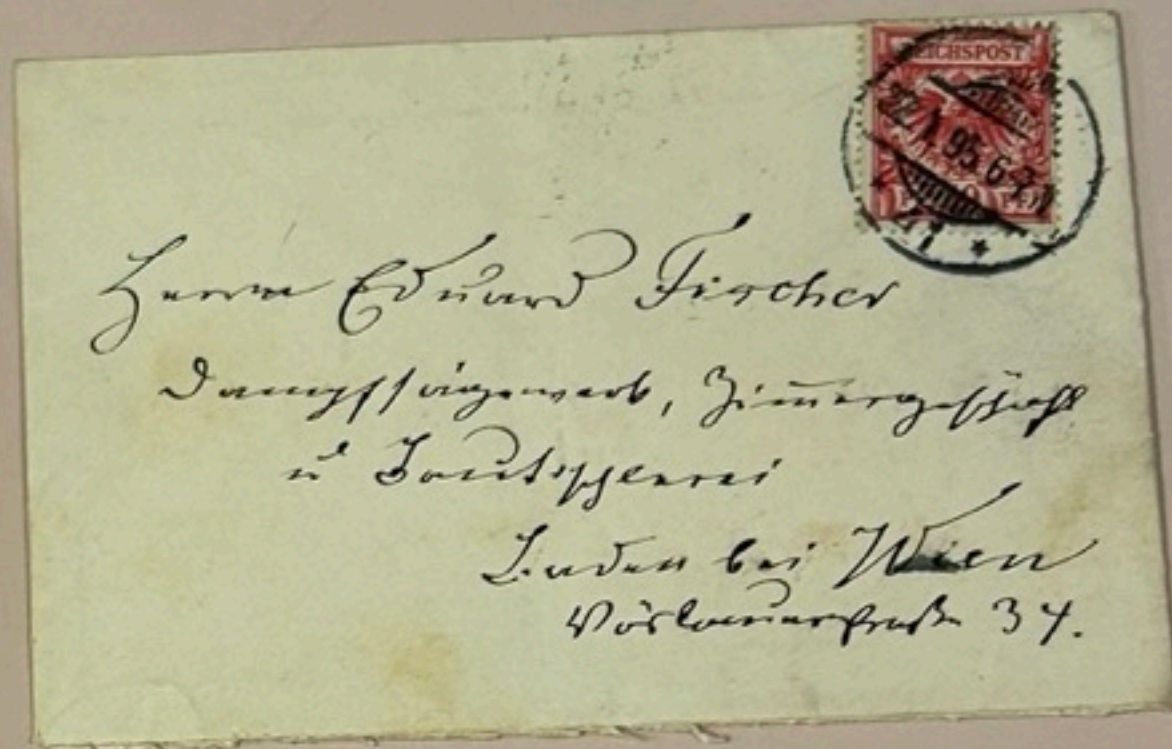 REICHSPOST
22.1.95.6-7N
PF PF
Herrn Eduard Fischer
Dampfsägewerk, Zimmergeschäft
u Bautischlerei
Baden bei Wien
Vöslauerstraße 34.